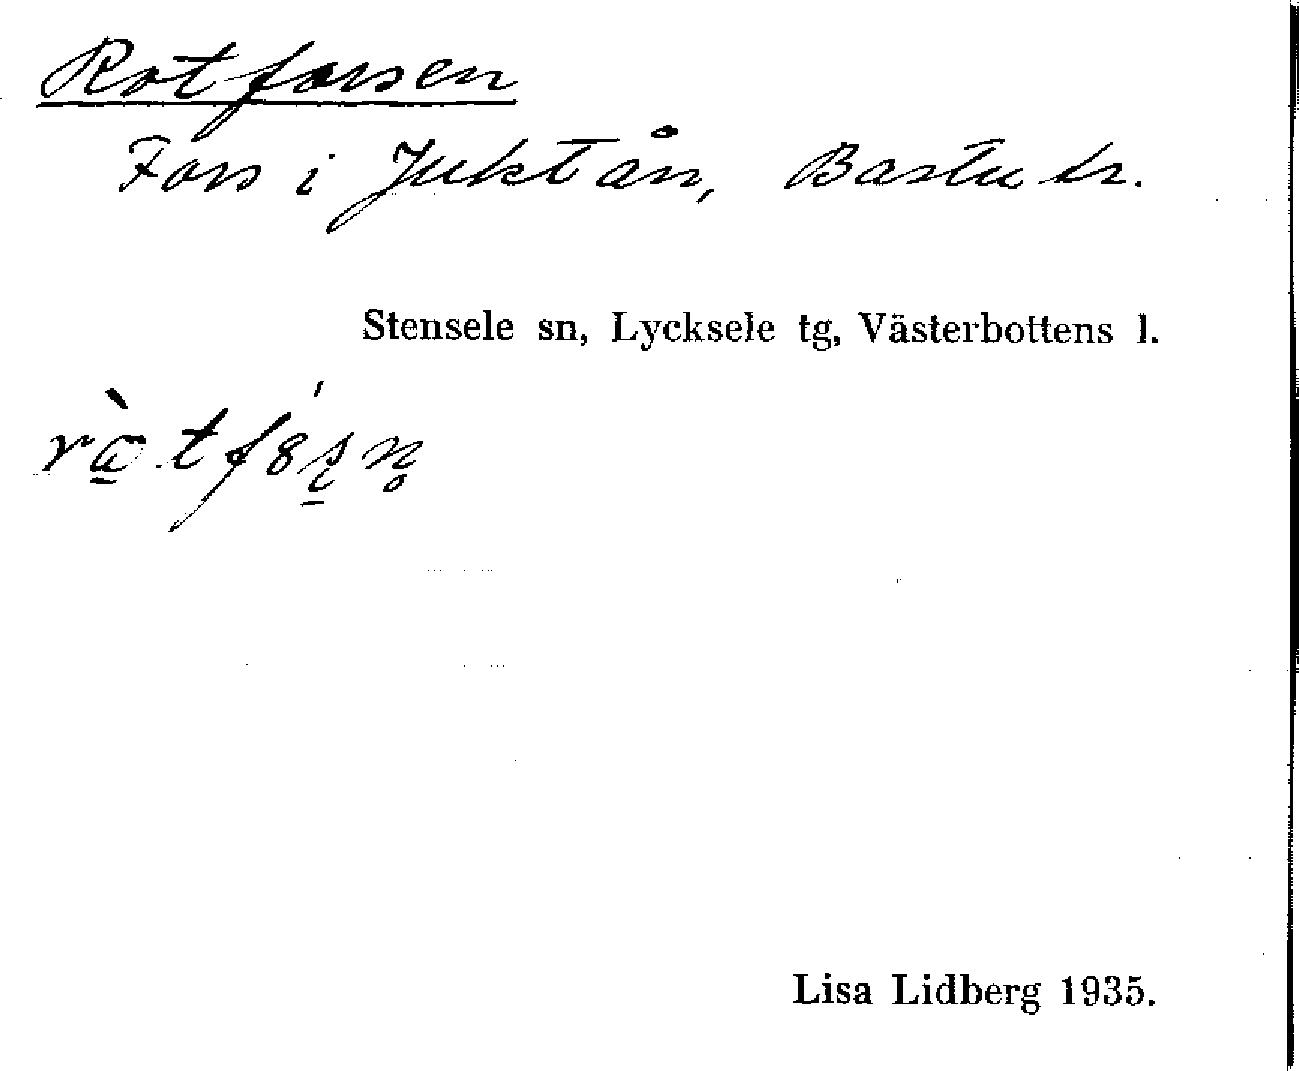 Rotforsen
Fors i Juktån, Bastutr.
Stensele sn, Lycksele tg, Västerbottens l.
Lisa Lidberg 1935.